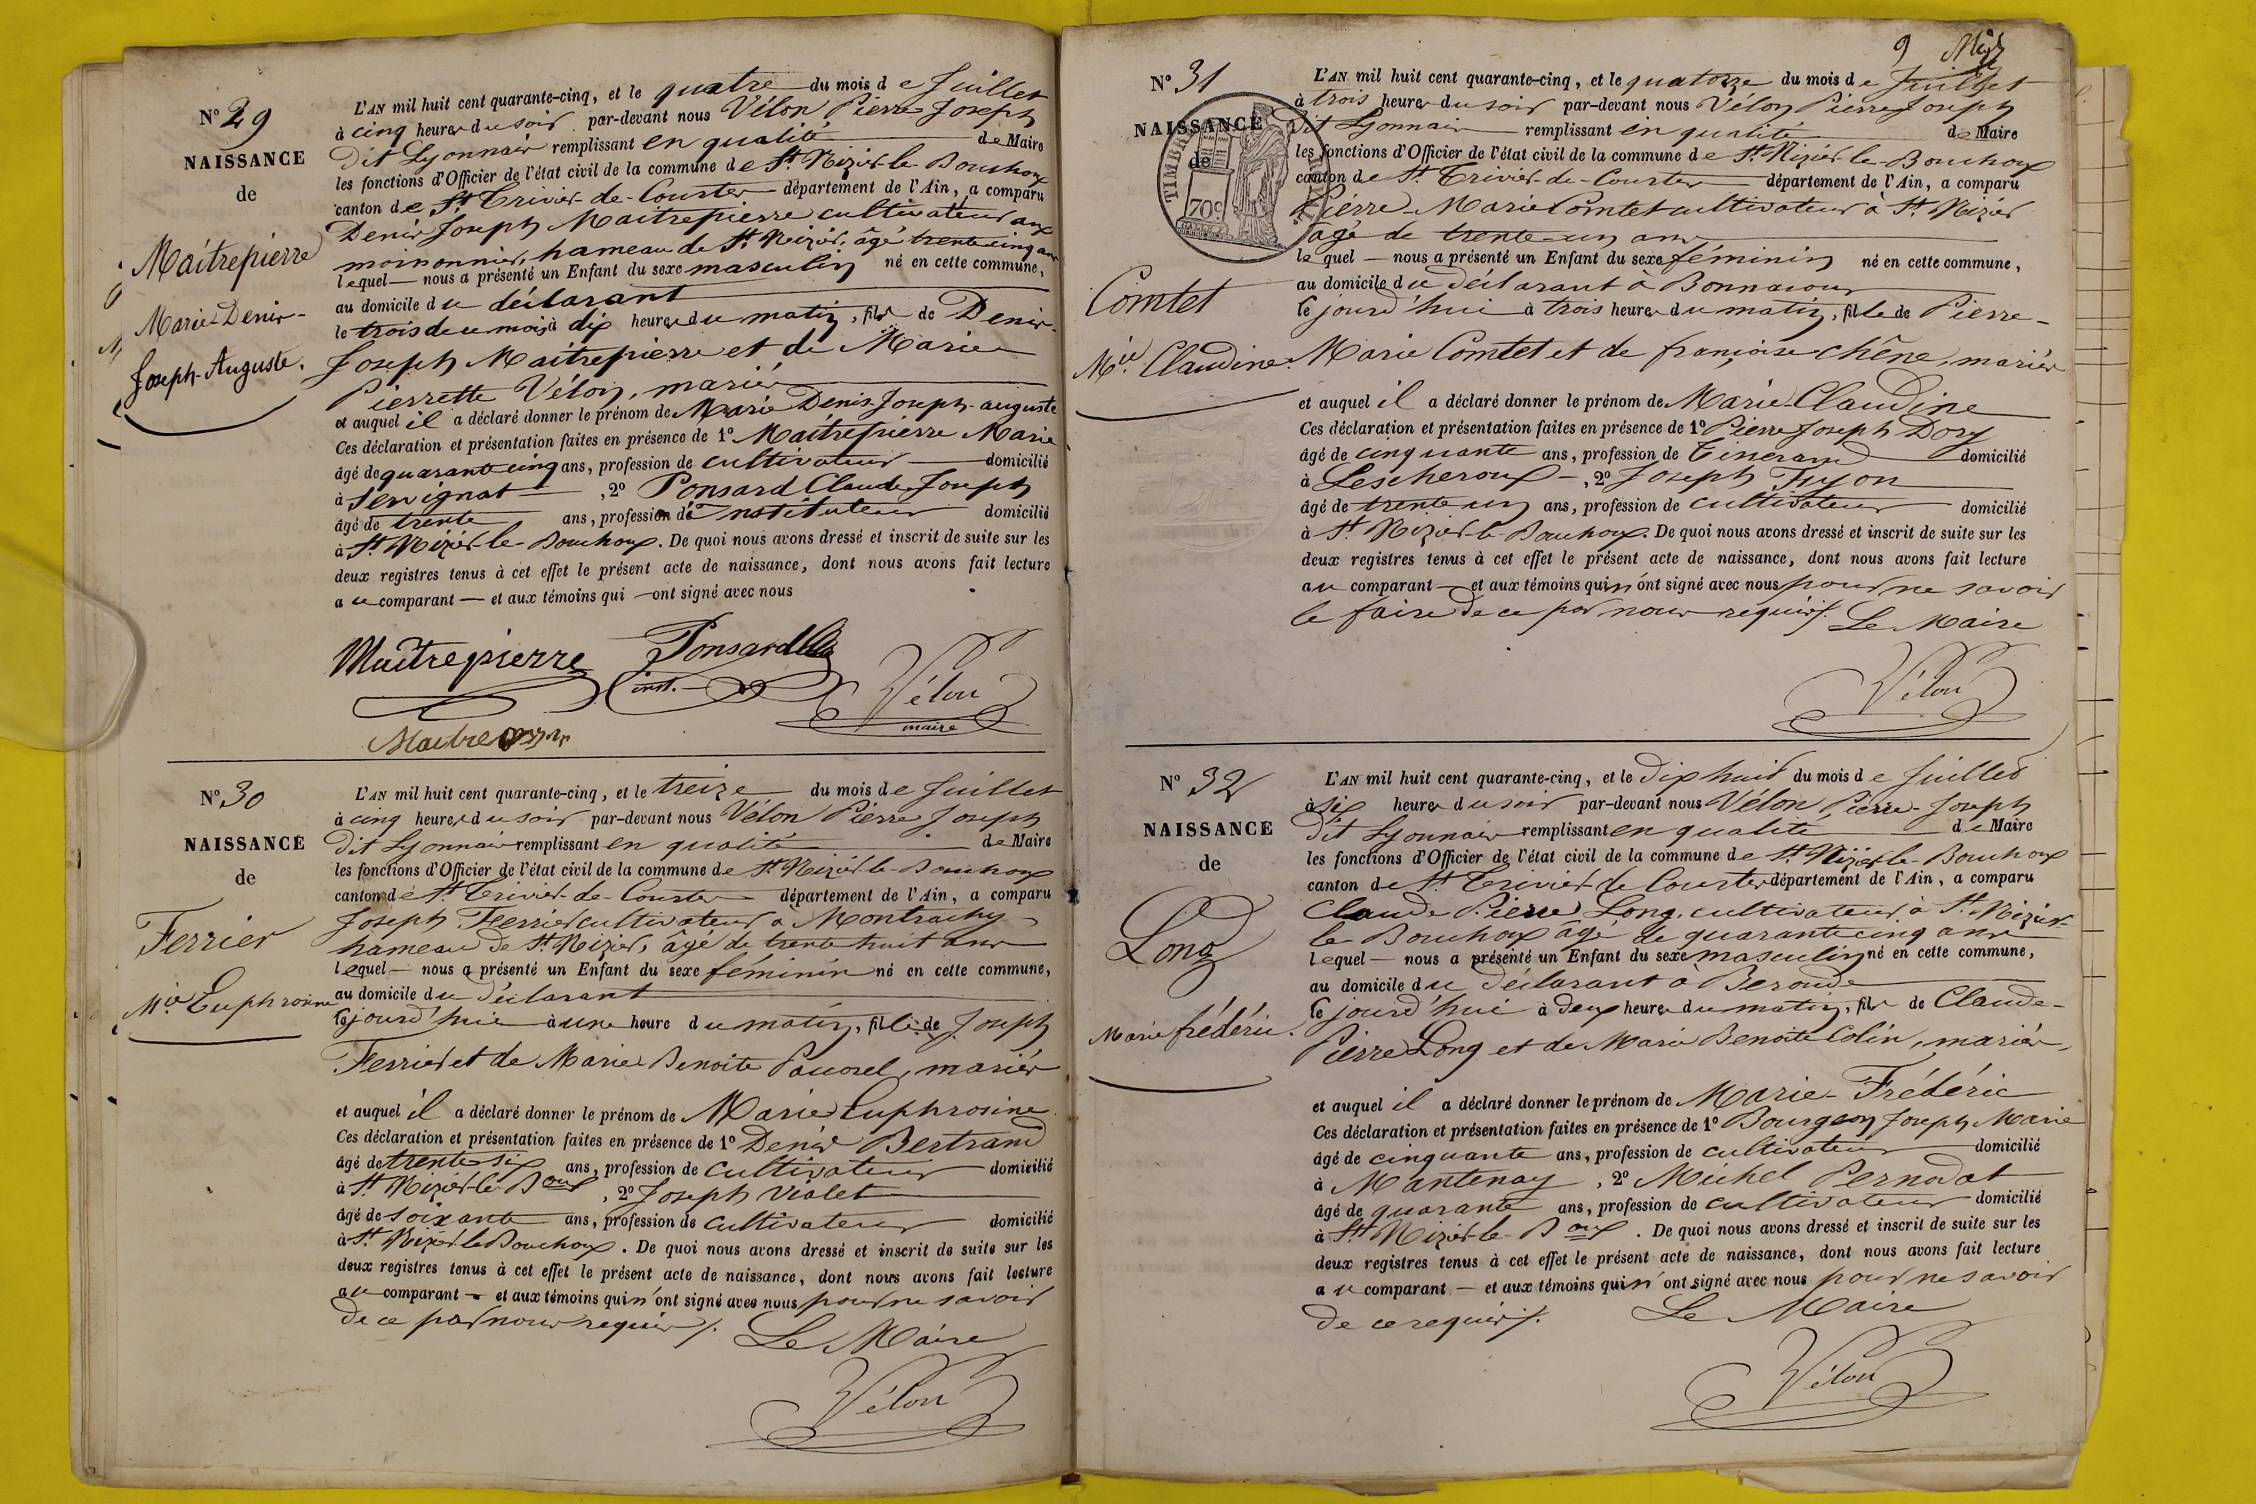 N° 29
NAISSANCE
de
Maitrepierre
Marie Denis-
Joseph-Auguste.
L'AN mil huit cent quarante-cinq, et le quatre du mois de Juillet
à cinq heures du soir par-devant nous Vélon Pierre Joseph
dit Lyonnais remplissant en qualité de Maire
les fonctions d'Officier de l'état civil de la commune de St Nizier-le-Bouchoux
canton de St Trivier-de-Courtes département de l'Ain, a comparu
Denis Joseph Maitrepierre cultivateur aux
moissonniers, hameau de St Nizier, âgé trente cinq ans
lequel nous a présenté un Enfant du sexe masculin né en cette commune,
au domicile du déclarant
le trois de ce mois à dix heures du matin, fils de Denis-
Joseph Maitrepierre et de Marie
Pierrette Vélon, mariés
et auquel il a déclaré donner le prénom de Marie Denis Joseph-auguste
Ces déclaration et présentation faites en présence de 1° Maitrepierre Marie
âgé de quarante cinq ans, profession de cultivateur domicilié
à Servignat, 2° Ponsard Claude Joseph
âgé de trente ans, profession de instituteur domicilié
à St Nizier-le-Bouchoux. De quoi nous avons dressé et inscrit de suite sur les
deux registres tenus à cet effet le présent acte de naissance, dont nous avons fait lecture
au comparant — et aux témoins qui — ont signé avec nous
Maitrepierre Ponsard
inst. Vélon
maire
N° 30
NAISSANCE
de
Ferrier
Mie Euphrosine
L'AN mil huit cent quarante-cinq, et le treize du mois de Juillet
à cinq heures du soir par-devant nous Vélon Pierre Joseph
dit Lyonnais remplissant en qualité de Maire
les fonctions d'Officier de l'état civil de la commune de St Nizier-le-Bouchoux
canton de St Trivier-de-Courtes département de l'Ain, a comparu
Joseph Ferrier cultivateur à Montrachy
hameau de St Nizier, âgé de trente huit ans
lequel — nous a présenté un Enfant du sexe féminin né en cette commune,
au domicile du déclarant
le jourd'hui à une heure du matin, fille de Joseph
Ferrier et de Marie Benoite Pauosel, mariés
et auquel il a déclaré donner le prénom de Marie Euphrosine
Ces déclaration et présentation faites en présence de 1° Denis Bertrand
âgé de trente six ans, profession de cultivateur domicilié
à St Nizier-le-Boux, 2° Joseph Violet
âgé de soixante ans, profession de cultivateur domicilié
à St Nizier le Bouchoux. De quoi nous avons dressé et inscrit de suite sur les
deux registres tenus à cet effet le présent acte de naissance, dont nous avons fait lecture
au comparant — et aux témoins qui n'ont signé avec nous pour ne savoir
de ce par nous requis /. Le Maire
Vélon
9
N° 31
NAISSANCE
de
TIMBRE
70c
Comtet
Mie Claudine.
L'AN mil huit cent quarante-cinq, et le quatorze du mois de Juillet
à trois heures du soir par-devant nous Vélon Pierre Joseph
dit Lyonnais remplissant en qualité de Maire
les fonctions d'Officier de l'état civil de la commune de St Nizier-le-Bouchoux
canton de St Trivier-de-Courtes département de l'Ain, a comparu
Pierre-Marie Comtet cultivateur à St Nizier
âgé de trente-un ans
lequel — nous a présenté un Enfant du sexe féminin né en cette commune,
au domicile du déclarant à Bonnacour
le jourd'hui à trois heures du matin, fille de Pierre-
Marie Comtet et de françoise chêne, mariés
et auquel il a déclaré donner le prénom de Marie-Claudine
Ces déclaration et présentation faites en présence de 1° Pierre Joseph Dory
âgé de cinquante ans, profession de Tisserand domicilié
à Lescheroux -, 2° Joseph Tuyon
âgé de trente un ans, profession de cultivateur domicilié
à St Nizier-le-Bouchoux. De quoi nous avons dressé et inscrit de suite sur les
deux registres tenus à cet effet le présent acte de naissance, dont nous avons fait lecture
au comparant — et aux témoins qui n'ont signé avec nous pour ne savoir
le faire de ce par nous requis /. Le Maire
Vélon
N° 32
NAISSANCE
de
Long
Marie frédéric.
L'AN mil huit cent quarante-cinq, et le dix huit du mois de Juillet
à six heures du soir par-devant nous Vélon Pierre-Joseph
dit Lyonnais remplissant en qualité de Maire
les fonctions d'Officier de l'état civil de la commune de St Nizier-le-Bouchoux
canton de St Trivier de Courtes département de l'Ain, a comparu
Claude Pierre Long, cultivateur à St Nizier-
le Bouchoux âgé de quarante cinq ans
lequel — nous a présenté un Enfant du sexe masculin né en cette commune,
au domicile du déclarant à Beroude
le jourd'hui à deux heures du matin, fils de Claude-
Pierre Long et de Marie Benoite Colin, mariés,
et auquel il a déclaré donner le prénom de Marie-Frédéric
Ces déclaration et présentation faites en présence de 1° Bourgeon Joseph Marie
âgé de cinquante ans, profession de cultivateur domicilié
à Mantenay, 2° Michel Pernodat
âgé de quarante ans, profession de cultivateur domicilié
à St Nizier-le-Boux. De quoi nous avons dressé et inscrit de suite sur les
deux registres tenus à cet effet le présent acte de naissance, dont nous avons fait lecture
au comparant — et aux témoins qui n'ont signé avec nous pour ne savoir
de ce requis /. Le Maire
Vélon